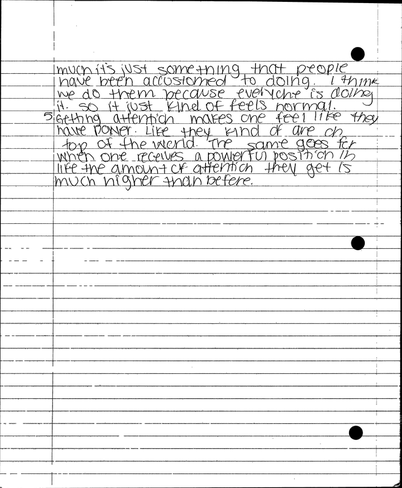 much it's just something that people
have been accustomed to doing. I think
we do them because everyone is doing
it. so it just kind of feels normal.
5 Getting attention makes one feel like they
have power. Like they kind of are on
top of the world. The same goes for
when one receives a powerful position in
life the amount of attention they get is
much higher than before.